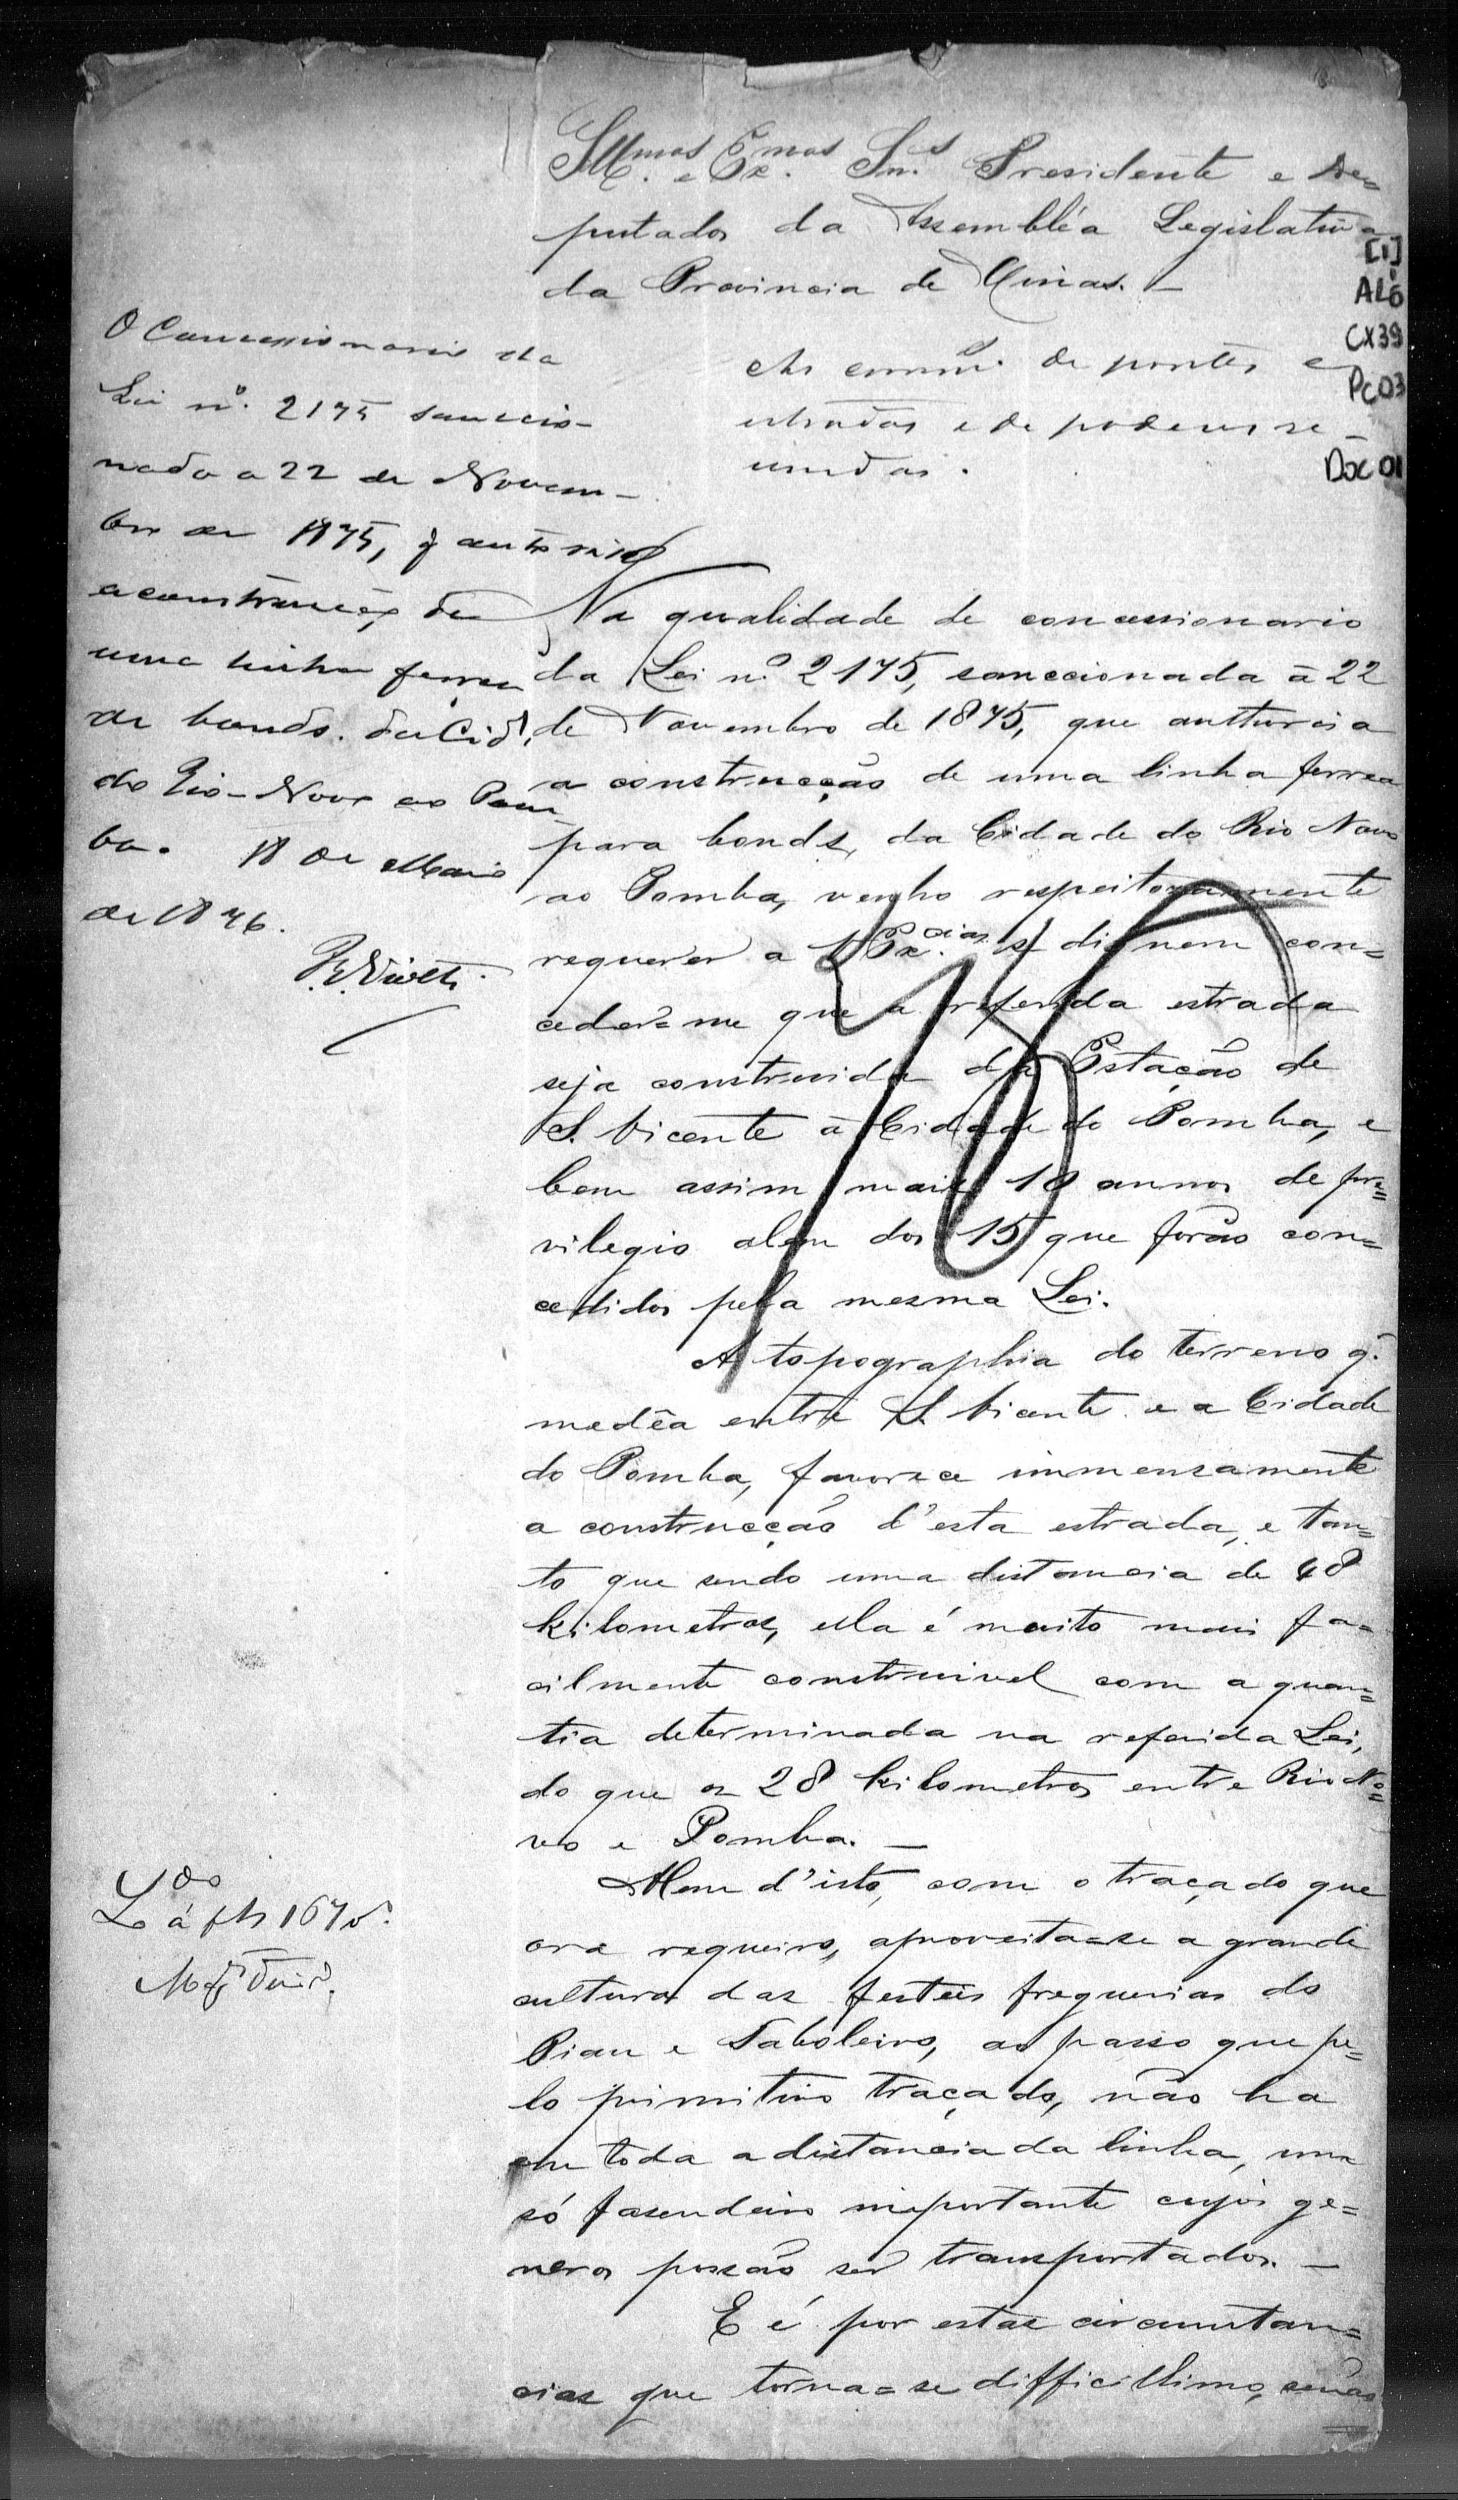 Ill.mos e Ex.mos Sn.s Presidente e De=
putados da Assembléa Legislativa
da Provincia de Minas. —
[1]
AL6
CX39
PC03
Doc 01
Ás comm.s de pontes e
estradas e de poderes re-
unidas.
O Concessionario da
Lei nº. 2175 sanccio-
nada a 22 de Novem-
bro de 1875, q autorisa
a construcção de
uma linha ferrea
de bonds. da Cid.e
do Rio-Novo ao Pom-
ba. 18 de Maio
de 1876.
Na qualidade de concessionario
da Lei nº 2175, sanccionada á 22
de Novembro de 1875, que authorisa
a construcção de uma linha ferrea
para bonds, da Cidade do Rio Novo
ao Pomba, venho respeitosamente
requerer a V. Ex.cias se dignem con=
ceder=me que a referida estrada
seja construida da Estação de
S. Vicente á Cidade do Pomba, e
bem assim mais 10 annos de pre=
vilegio alem dos 15 que forão con=
cedidos pela mesma Lei.
A topographia do terreno q.
medêa entre S. Vicente e a Cidade
do Pomba, favorece immensamente
a construcção d'esta estrada, e tan=
to que sendo uma distancia de 48
kilometros, ella é muito mais fa=
cilmente construivel com a quan=
tia determinada na referida Lei,
do que os 28 kilometros entre Rio No=
vo e Pomba. —
Alem d'isto, com o traçado que
ora requeiro, aproveita=se a grande
cultura das ferteis freguesias do
Piau e Taboleiro, ao passo que pe=
lo primitivo traçado, não ha
em toda a distancia da linha, um
só fasendeiro importante cujos ge=
neros possão ser transportados. —
E é por estas circunstan=
cias que torna=se difficillimo, senão
L.do á fls 167 v.